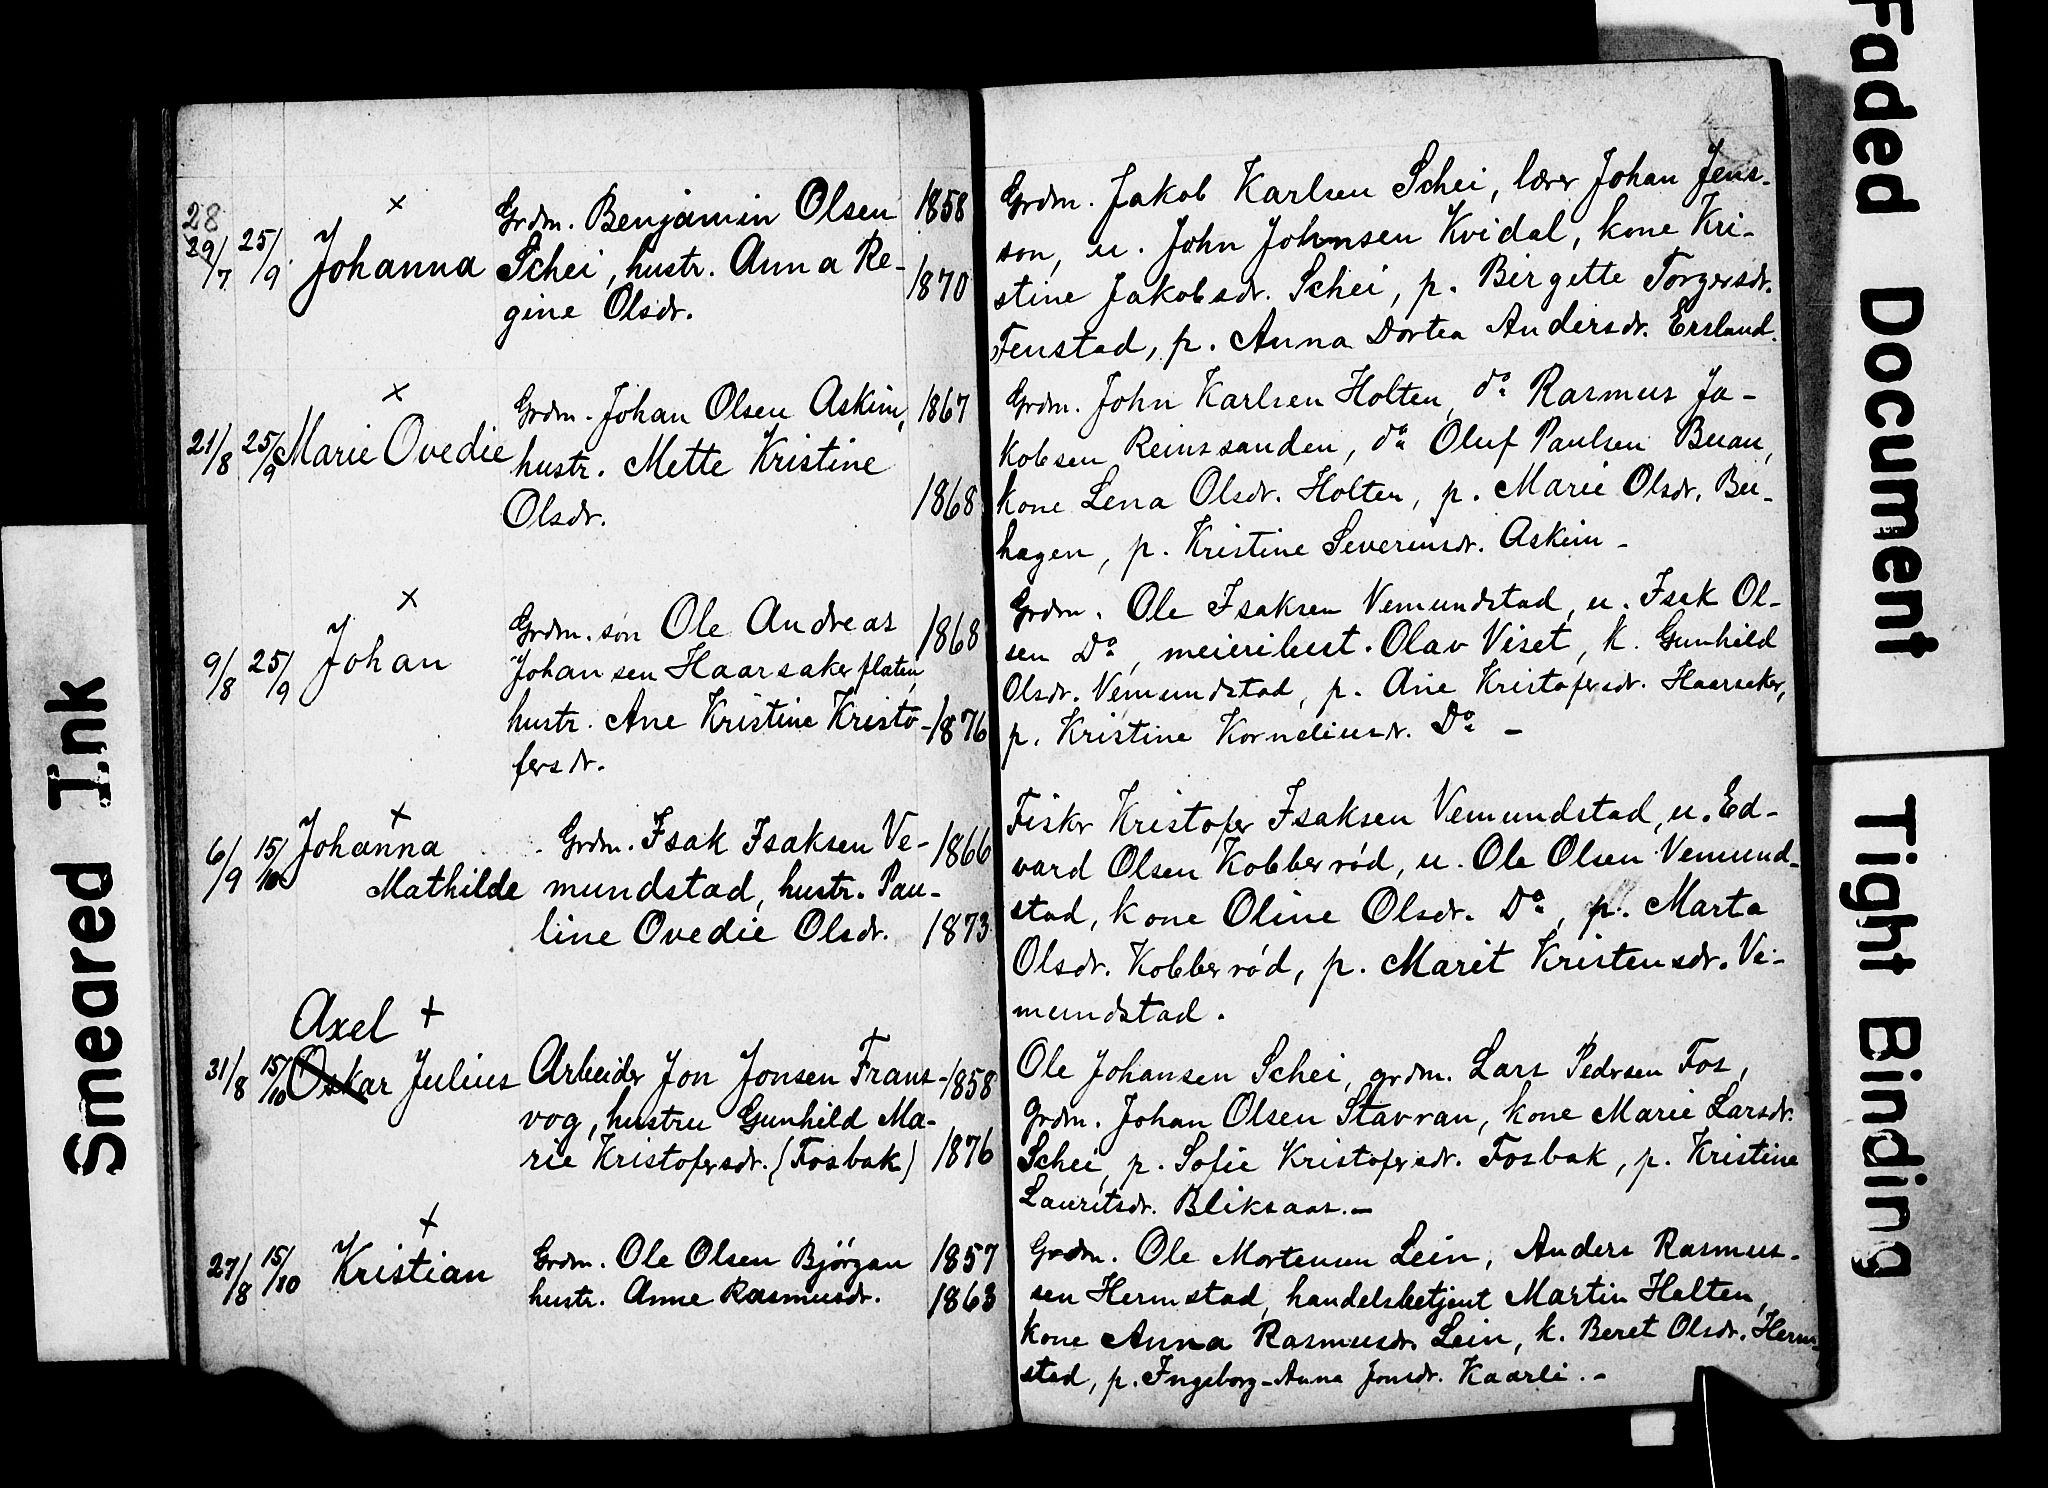 28
29/7 25/9 Johanna × Grdm. Benjamin Olsen 1858
Schei, hustr. Anna Re- 1870
gine Olsdr.
Grdm. Jakob Karlsen Schei, lærer Johan Jens-
son, u. John Johnsen Kvidal, kone Kri-
stine Jakobsdr. Schei, p. Birgette Torgersdr.
Fenstad, p. Anna Dortea Andersdr. Ersland.
21/8 25/9 Marie Ovedie × Grdm. Johan Olsen Askim, 1867
hustr. Mette Kristine
Olsdr. 1868
Grdm. John Karlsen Holten, do Rasmus Ja-
kobsen Reinssanden, do Oluf Paulsen Buan,
kone Lena Olsdr. Holten, p. Marie Olsdr. Bu-
hagen, p. Kristine Severinsdr. Askim -
9/8 25/9 Johan × Grdm. søn Ole Andreas 1868
Johansen Haarsakerflaten,
hustr. Ane Kristine Kristo- 1876
fersdr.
Grdm. Ole Isaksen Vemundstad, u. Isak Ol-
sen Do, meieribest. Olav Viset, k. Gunhild
Olsdr. Vemundstad, p. Ane Kristofersdr. Haarsaker,
p. Kristine Korneliusdr. Do -
6/9 15/10 Johanna × Grdm. Isak Isaksen Ve- 1866
Mathilde mundstad, hustr. Pau-
line Ovedie Olsdr. 1873
Fisker Kristofer Isaksen Vemundstad, u. Ed-
vard Olsen Kobberrød, u. Ole Olsen Vemund-
stad, kone Oline Olsdr. Do, p. Marta
Olsdr. Kobberrød, p. Marit Kristensdr. Ve-
mundstad.
Axel +
31/8 15/10 Oskar Julius Arbeider Jon Jonsen Frans- 1858
vog, hustru Gunhild Ma-
rie Kristofersdr. (Fosbak) 1876
Ole Johansen Schei, grdm. Lars Pedersen Fos,
grdm. Johan Olsen Stavran, kone Marie Larsdr.
Schei, p. Sofie Kristofersdr. Fosbak, p. Kristine
Lauritsdr. Bliksaas.-
27/8 15/10 Kristian + Grdm. Ole Olsen Bjørgan 1857
hustr. Anne Rasmusdr. 1863
Grdm. Ole Mortensen Lein, Anders Rasmus-
sen Hermstad, handelsbetjent Martin Holten,
kone Anna Rasmusdr. Lein, k. Beret Olsdr. Herm-
stad, p. Ingeborg-Anna Jonsdr. Kaarli.-
Smeared Ink
Faded Document
Tight Binding